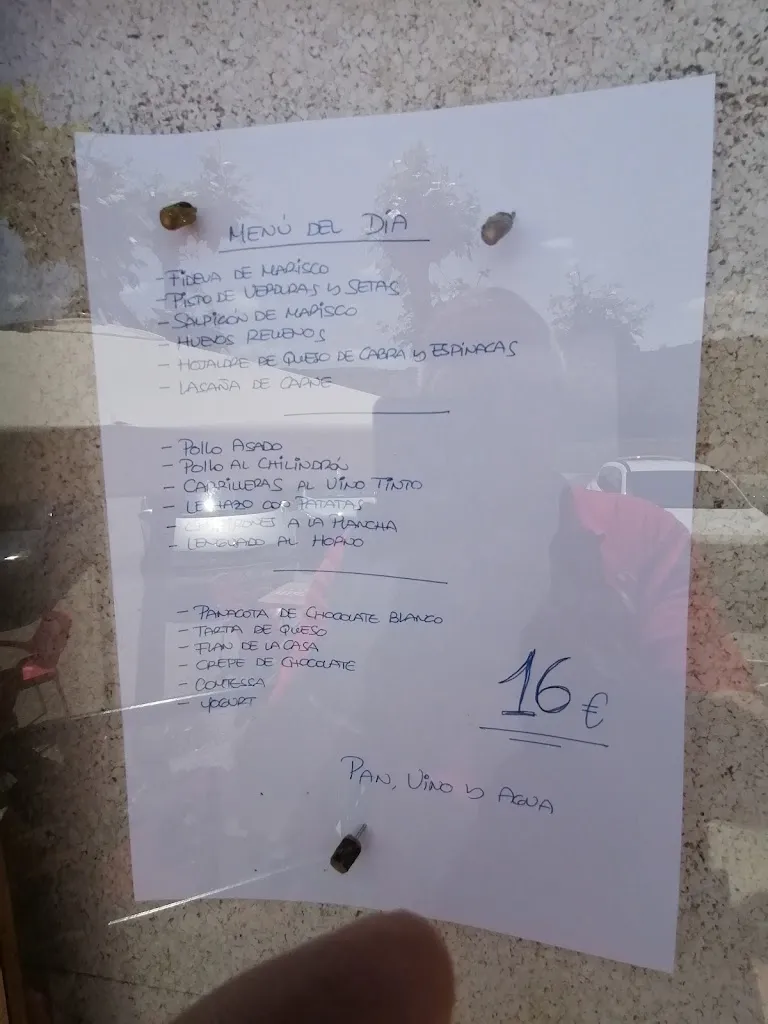 MENÚ DEL DÍA
- FIDEUA DE MARISCO
- PISTO DE VERDURAS Y SETAS
- SALPICÓN DE MARISCO
- HUEVOS RELLENOS
- HOJALDRE DE QUESO DE CABRA Y ESPINACAS
- LASAÑA DE CARNE
- POLLO ASADO
- POLLO AL CHILINDRÓN
- CARRILLERAS AL VINO TINTO
- LECHAZO CON PATATAS
- CHIPIRONES A LA PLANCHA
- LENGUADO AL HORNO
- PANACOTA DE CHOCOLATE BLANCO
- TARTA DE QUESO
- FLAN DE LA CASA
- CREPE DE CHOCOLATE
- CONTESSA
- YOGURT
16 €
PAN, VINO Y AGUA